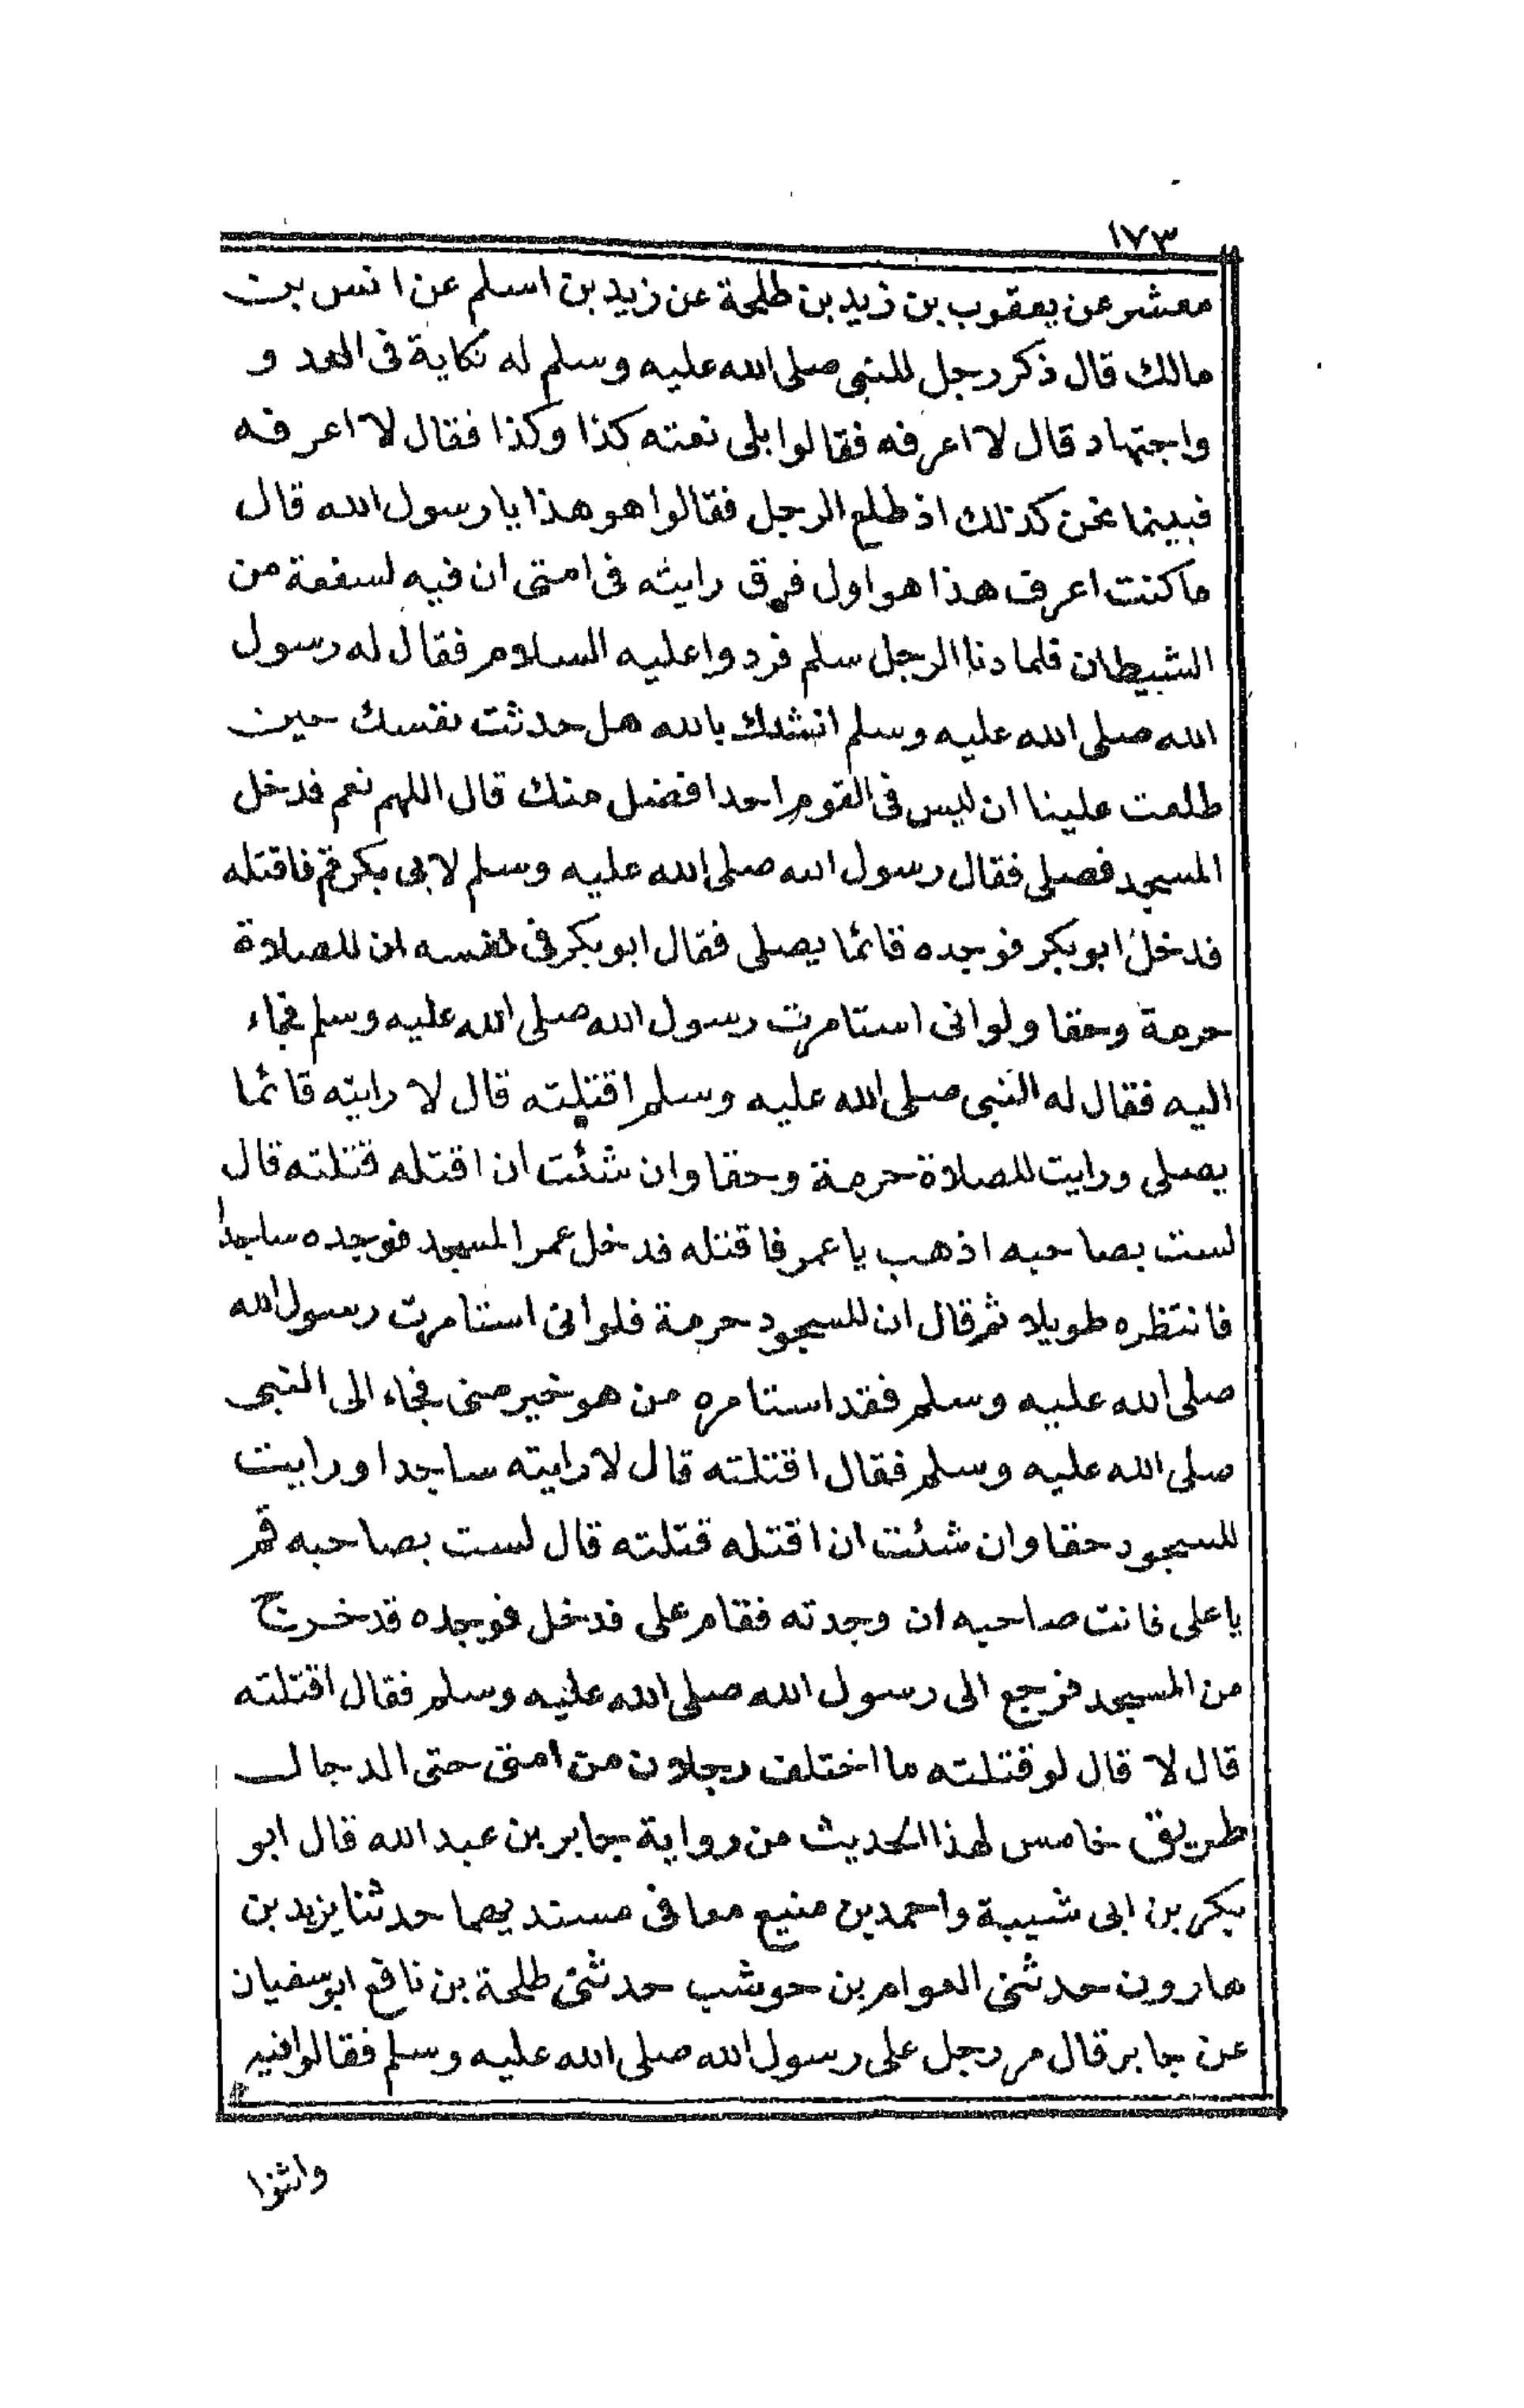 ١٧٣
معشر عن يعقوب بن زيد بن طلحة عن زيد بن اسلم عن انس بن
مالك قال ذكر رجل للنبى صلى الله عليه وسلم له نكاية فى العدو و
واجتهاد قال لا اعرفه فقالوا بلى نعته كذا وكذا فقال لا اعرفه
فبينما نحن كذلك اذ طلع الرجل فقالوا هو هذا يا رسول الله قال
ما كنت اعرف هذا هو اول فرق رايته فى امتى ان فيه لسفعة من
الشيطان فلما دنا الرجل سلم فردوا عليه السلام فقال له رسول
الله صلى الله عليه وسلم انشدك بالله هل حدثت نفسك حين
طلعت علينا ان ليس فى القوم احدا فضل منك قال اللهم نعم فدخل
المسجد فصلى فقال رسول الله صلى الله عليه وسلم لابى بكر قم فاقتله
فدخل ابو بكر فوجده قائما يصلى فقال ابو بكر فى نفسه ان للصلاة
حرمة وحقا ولو انى استامرت رسول الله صلى الله عليه وسلم فجاء
اليه فقال له النبى صلى الله عليه وسلم اقتلته قال لا رايته قائما
يصلى ورايت للصلاة حرمة وحقا وان شئت ان اقتله قتلته قال
لست بصاحبه اذهب يا عمر فاقتله فدخل عمر المسجد فوجده ساجدا
فانتظره طويلا ثم قال ان للسجود حرمة فلو انى استامرت رسول الله
صلى الله عليه وسلم فقد استامره من هو خير منى فجاء الى النبى
صلى الله عليه وسلم فقال اقتلته قال لا رايته ساجدا ورايت
للسجود حقا وان شئت ان اقتله قتلته قال لست بصاحبه قم
يا على فانت صاحبه ان وجدته فقام على فدخل فوجده قد خرج
من المسجد فرجع الى رسول الله صلى الله عليه وسلم فقال اقتلته
قال لا قال لو قتلته ما اختلف رجلان من امتى حتى الدجال
طريق خامس لهذا الحديث من رواية جابر بن عبد الله قال ابو
بكر بن ابى شيبة واحمد بن منيع معا فى مسنديهما حدثنا يزيد بن
هارون حدثنى العوام بن حوشب حدثنى طلحة بن نافع ابو سفيان
عن جابر قال مر رجل على رسول الله صلى الله عليه وسلم فقالوا فيه
واثنوا